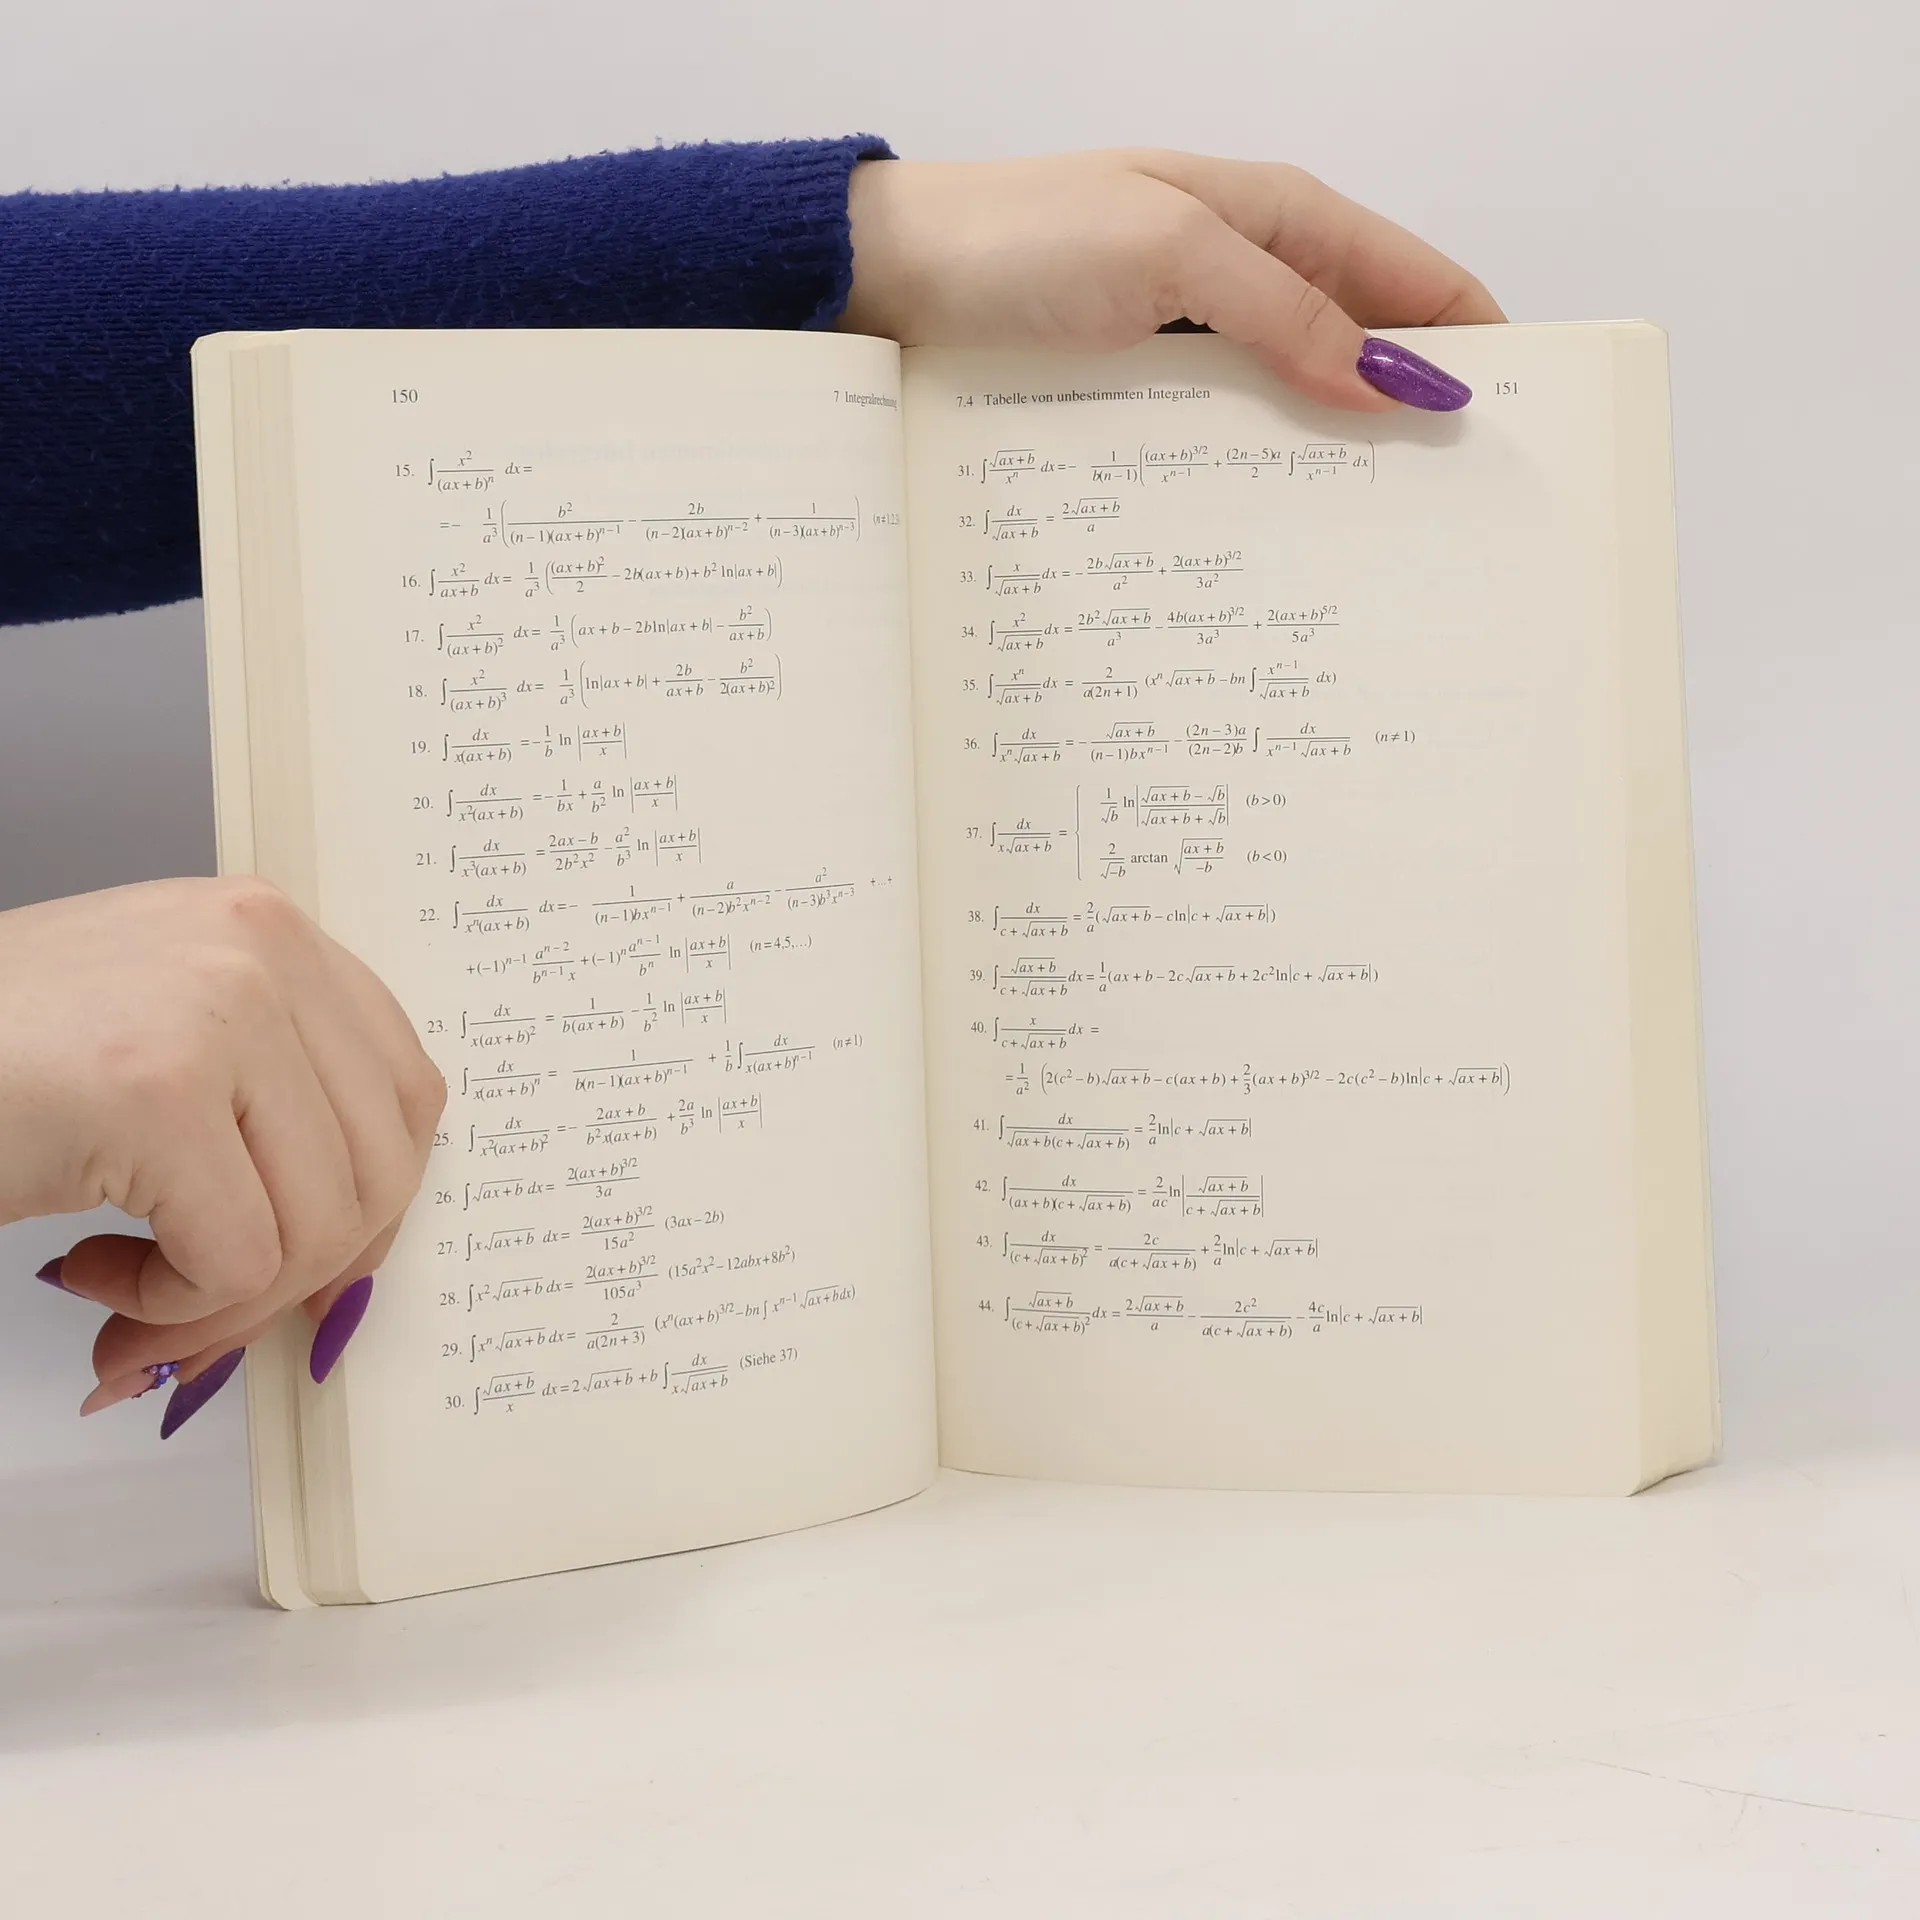 150
7 Integralrechnung
15. ∫ x²/(ax+b)ⁿ dx =
= − 1/a³ ( b²/((n−1)(ax+b)ⁿ⁻¹) − 2b/((n−2)(ax+b)ⁿ⁻²) + 1/((n−3)(ax+b)ⁿ⁻³) ) (n≠1,2,3)
16. ∫ x²/(ax+b) dx = 1/a³ ( (ax+b)²/2 − 2b(ax+b) + b² ln|ax+b| )
17. ∫ x²/(ax+b)² dx = 1/a³ ( ax+b − 2b ln|ax+b| − b²/(ax+b) )
18. ∫ x²/(ax+b)³ dx = 1/a³ ( ln|ax+b| + 2b/(ax+b) − b²/(2(ax+b)²) )
19. ∫ dx/(x(ax+b)) = − 1/b ln |(ax+b)/x|
20. ∫ dx/(x²(ax+b)) = − 1/(bx) + a/b² ln |(ax+b)/x|
21. ∫ dx/(x³(ax+b)) = (2ax−b)/(2b²x²) − a²/b³ ln |(ax+b)/x|
22. ∫ dx/(xⁿ(ax+b)) dx = − 1/((n−1)bxⁿ⁻¹) + a/((n−2)b²xⁿ⁻²) − a²/((n−3)b³xⁿ⁻³) +...+
+(−1)ⁿ⁻¹ aⁿ⁻²/(bⁿ⁻¹x) + (−1)ⁿ aⁿ⁻¹/bⁿ ln |(ax+b)/x| (n=4,5,...)
23. ∫ dx/(x(ax+b)²) = 1/(b(ax+b)) − 1/b² ln |(ax+b)/x|
∫ dx/(x(ax+b)ⁿ) = 1/(b(n−1)(ax+b)ⁿ⁻¹) + 1/b ∫ dx/(x(ax+b)ⁿ⁻¹) (n≠1)
25. ∫ dx/(x²(ax+b)²) = − (2ax+b)/(b²x(ax+b)) + 2a/b³ ln |(ax+b)/x|
26. ∫ √(ax+b) dx = 2(ax+b)^(3/2)/(3a)
27. ∫ x√(ax+b) dx = 2(ax+b)^(3/2)/(15a²) (3ax−2b)
28. ∫ x²√(ax+b) dx = 2(ax+b)^(3/2)/(105a³) (15a²x²−12abx+8b²)
29. ∫ xⁿ√(ax+b) dx = 2/(a(2n+3)) (xⁿ(ax+b)^(3/2) − bn ∫ xⁿ⁻¹√(ax+b) dx)
30. ∫ √(ax+b)/x dx = 2√(ax+b) + b ∫ dx/(x√(ax+b)) (Siehe 37)
7.4 Tabelle von unbestimmten Integralen
151
31. ∫ √(ax+b)/xⁿ dx = − 1/(b(n−1)) ( (ax+b)^(3/2)/xⁿ⁻¹ + (2n−5)a/2 ∫ √(ax+b)/xⁿ⁻¹ dx )
32. ∫ dx/√(ax+b) = 2√(ax+b)/a
33. ∫ x/√(ax+b) dx = − 2b√(ax+b)/a² + 2(ax+b)^(3/2)/(3a²)
34. ∫ x²/√(ax+b) dx = 2b²√(ax+b)/a³ − 4b(ax+b)^(3/2)/(3a³) + 2(ax+b)^(5/2)/(5a³)
35. ∫ xⁿ/√(ax+b) dx = 2/(a(2n+1)) (xⁿ√(ax+b) − bn ∫ xⁿ⁻¹/√(ax+b) dx)
36. ∫ dx/(xⁿ√(ax+b)) = − √(ax+b)/((n−1)bxⁿ⁻¹) − (2n−3)a/((2n−2)b) ∫ dx/(xⁿ⁻¹√(ax+b)) (n≠1)
37. ∫ dx/(x√(ax+b)) = { 1/√b ln |(√(ax+b) − √b)/(√(ax+b) + √b)| (b>0)
2/√(−b) arctan √((ax+b)/(−b)) (b<0)
38. ∫ dx/(c+√(ax+b)) = 2/a (√(ax+b) − c ln|c+√(ax+b)|)
39. ∫ √(ax+b)/(c+√(ax+b)) dx = 1/a (ax+b − 2c√(ax+b) + 2c² ln|c+√(ax+b)|)
40. ∫ x/(c+√(ax+b)) dx =
= 1/a² ( 2(c²−b)√(ax+b) − c(ax+b) + 2/3 (ax+b)^(3/2) − 2c(c²−b) ln|c+√(ax+b)| )
41. ∫ dx/(√(ax+b)(c+√(ax+b))) = 2/a ln|c+√(ax+b)|
42. ∫ dx/((ax+b)(c+√(ax+b))) = 2/(ac) ln |√(ax+b)/(c+√(ax+b))|
43. ∫ dx/(c+√(ax+b))² = 2c/(a(c+√(ax+b))) + 2/a ln|c+√(ax+b)|
44. ∫ √(ax+b)/(c+√(ax+b))² dx = 2√(ax+b)/a − 2c²/(a(c+√(ax+b))) − 4c/a ln|c+√(ax+b)|